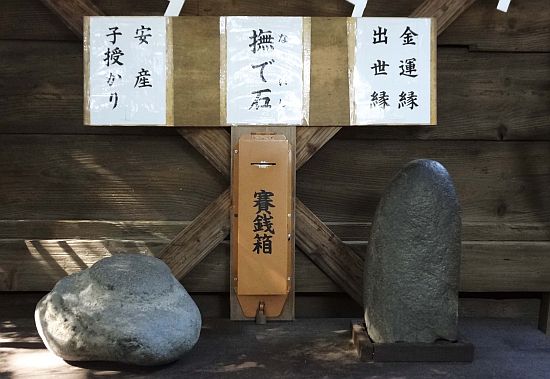 安産
子授かり
撫で石
なでいし
金運縁
出世縁
賽銭箱